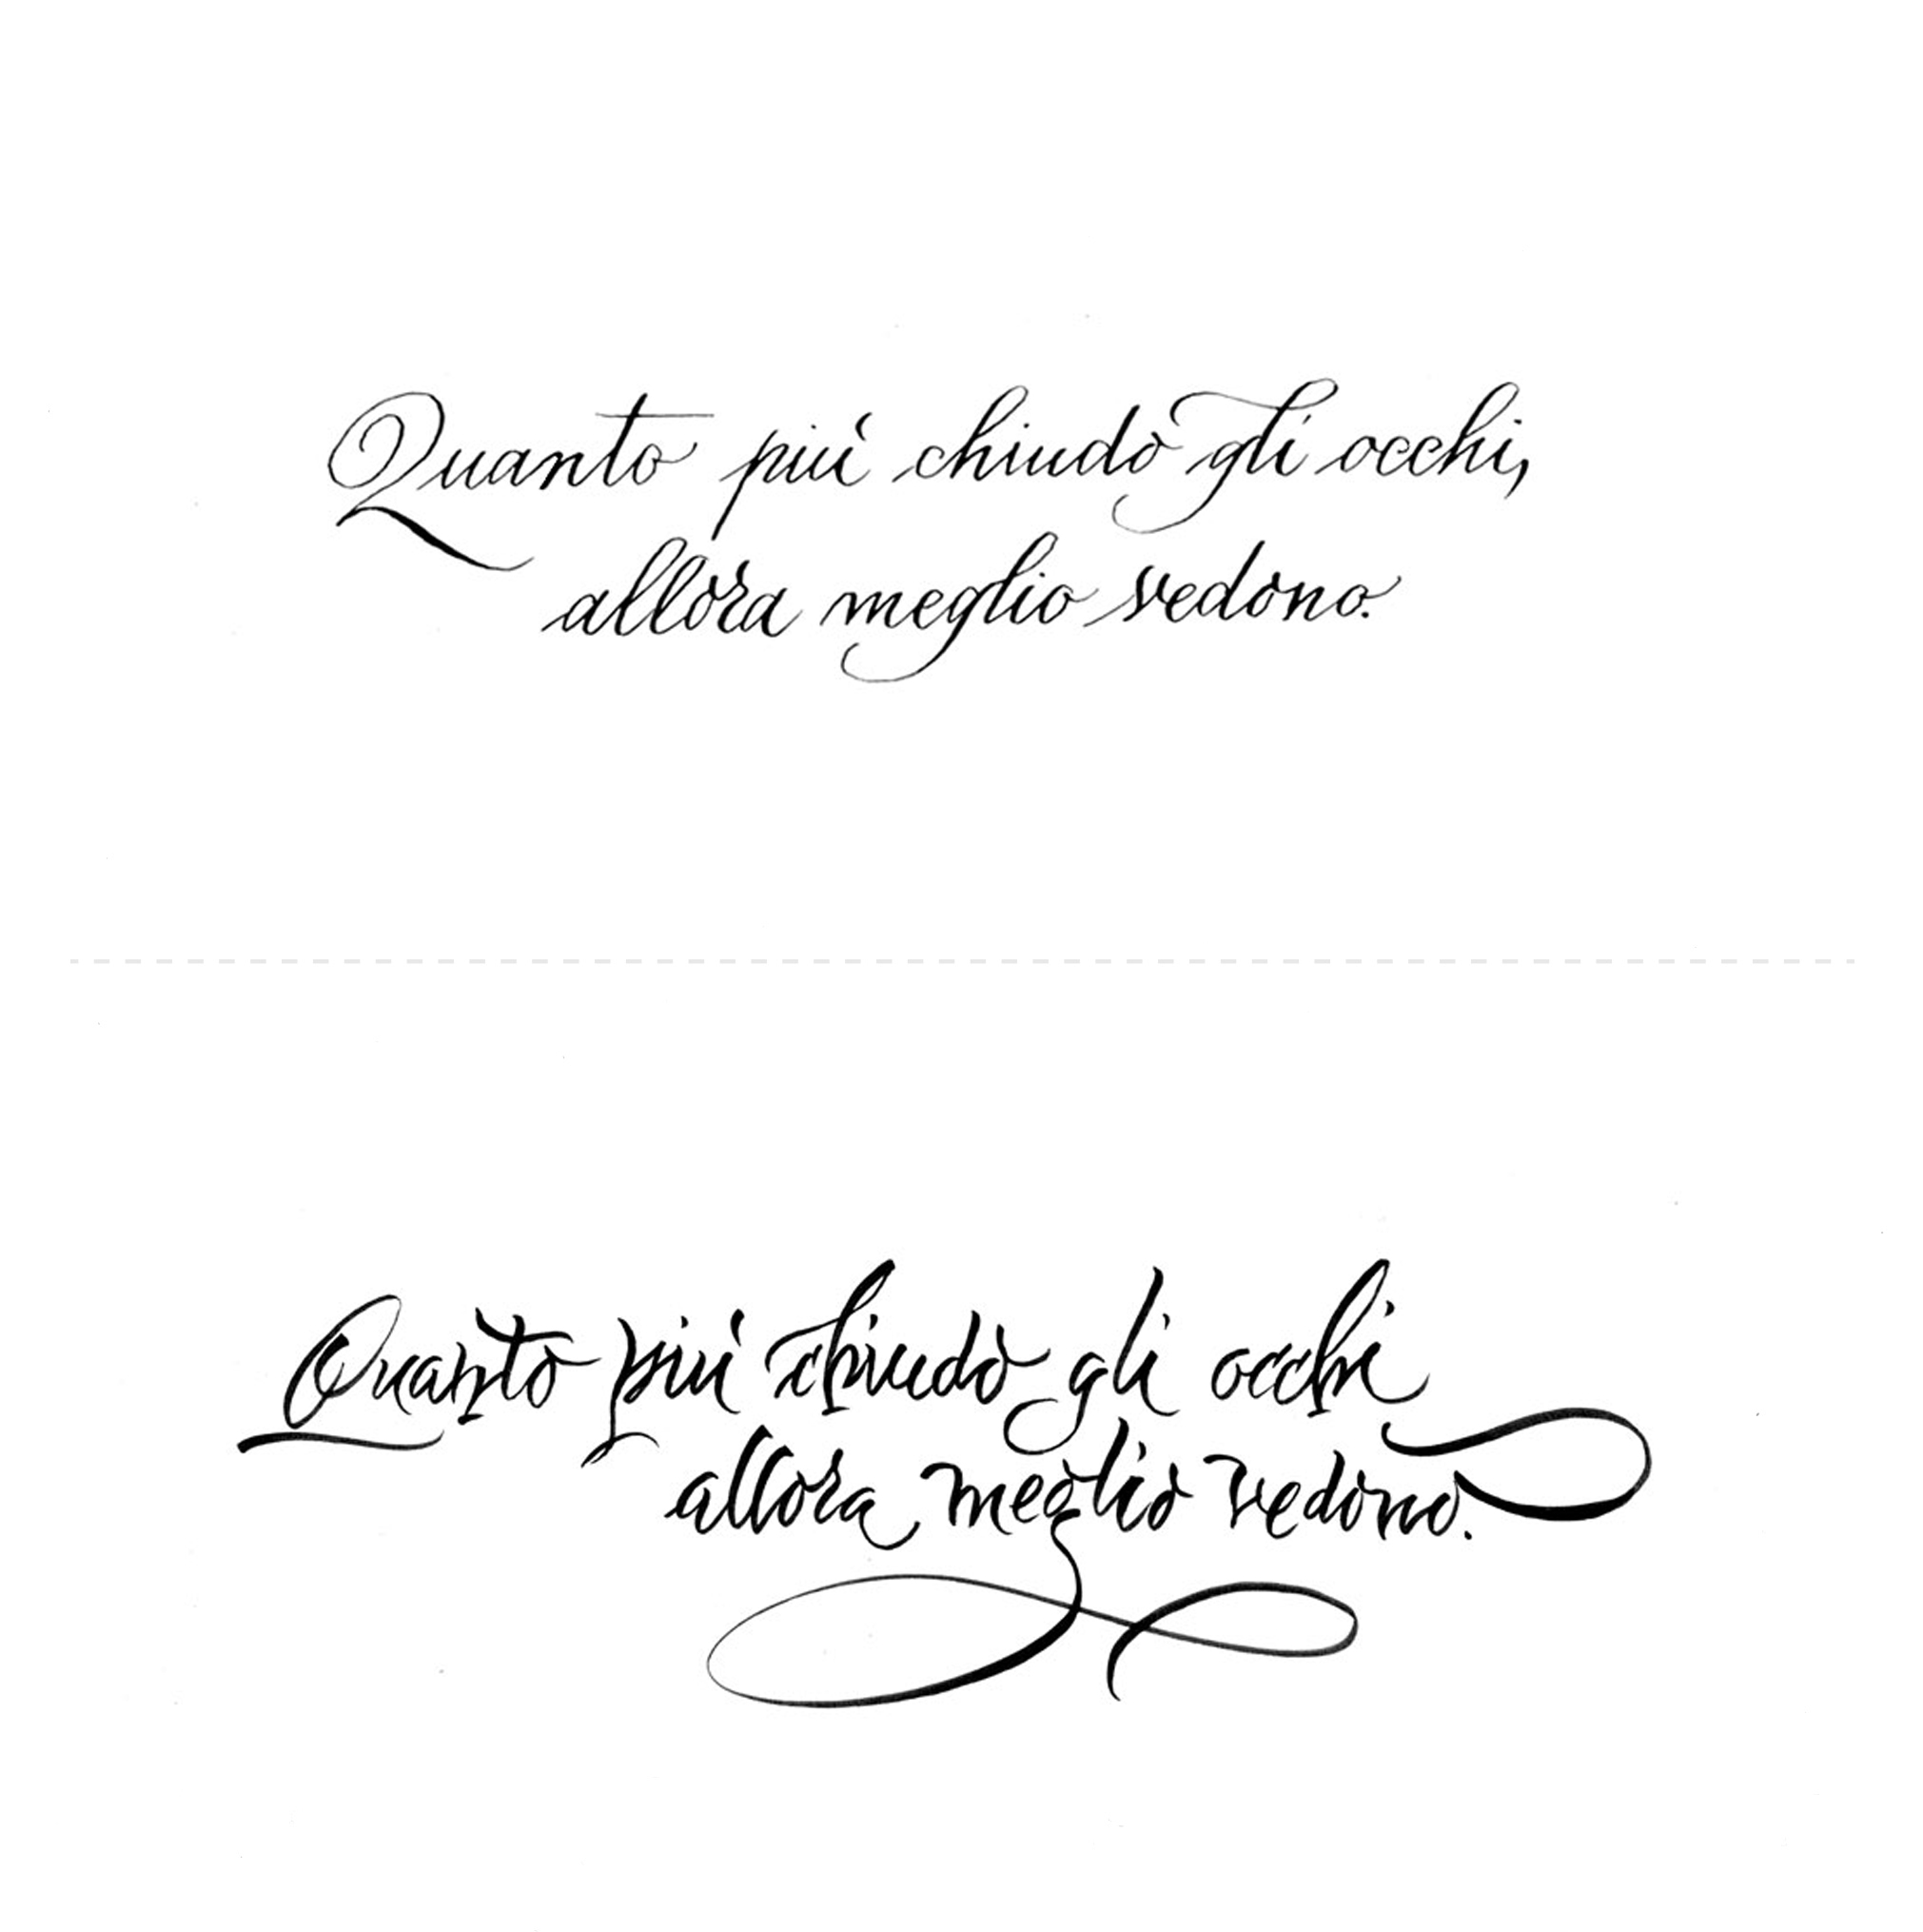 Quanto più chiudo gli occhi,
allora meglio vedono.
Quanto più chiudo gli occhi
allora meglio vedono.